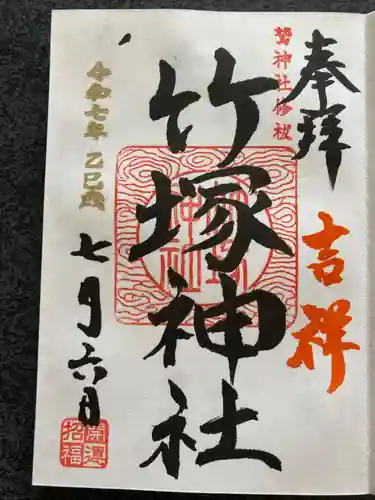 奉拝
吉祥
鷲神社修祓
竹塚神社
令和七年乙巳歳
七月六日
開運
招福